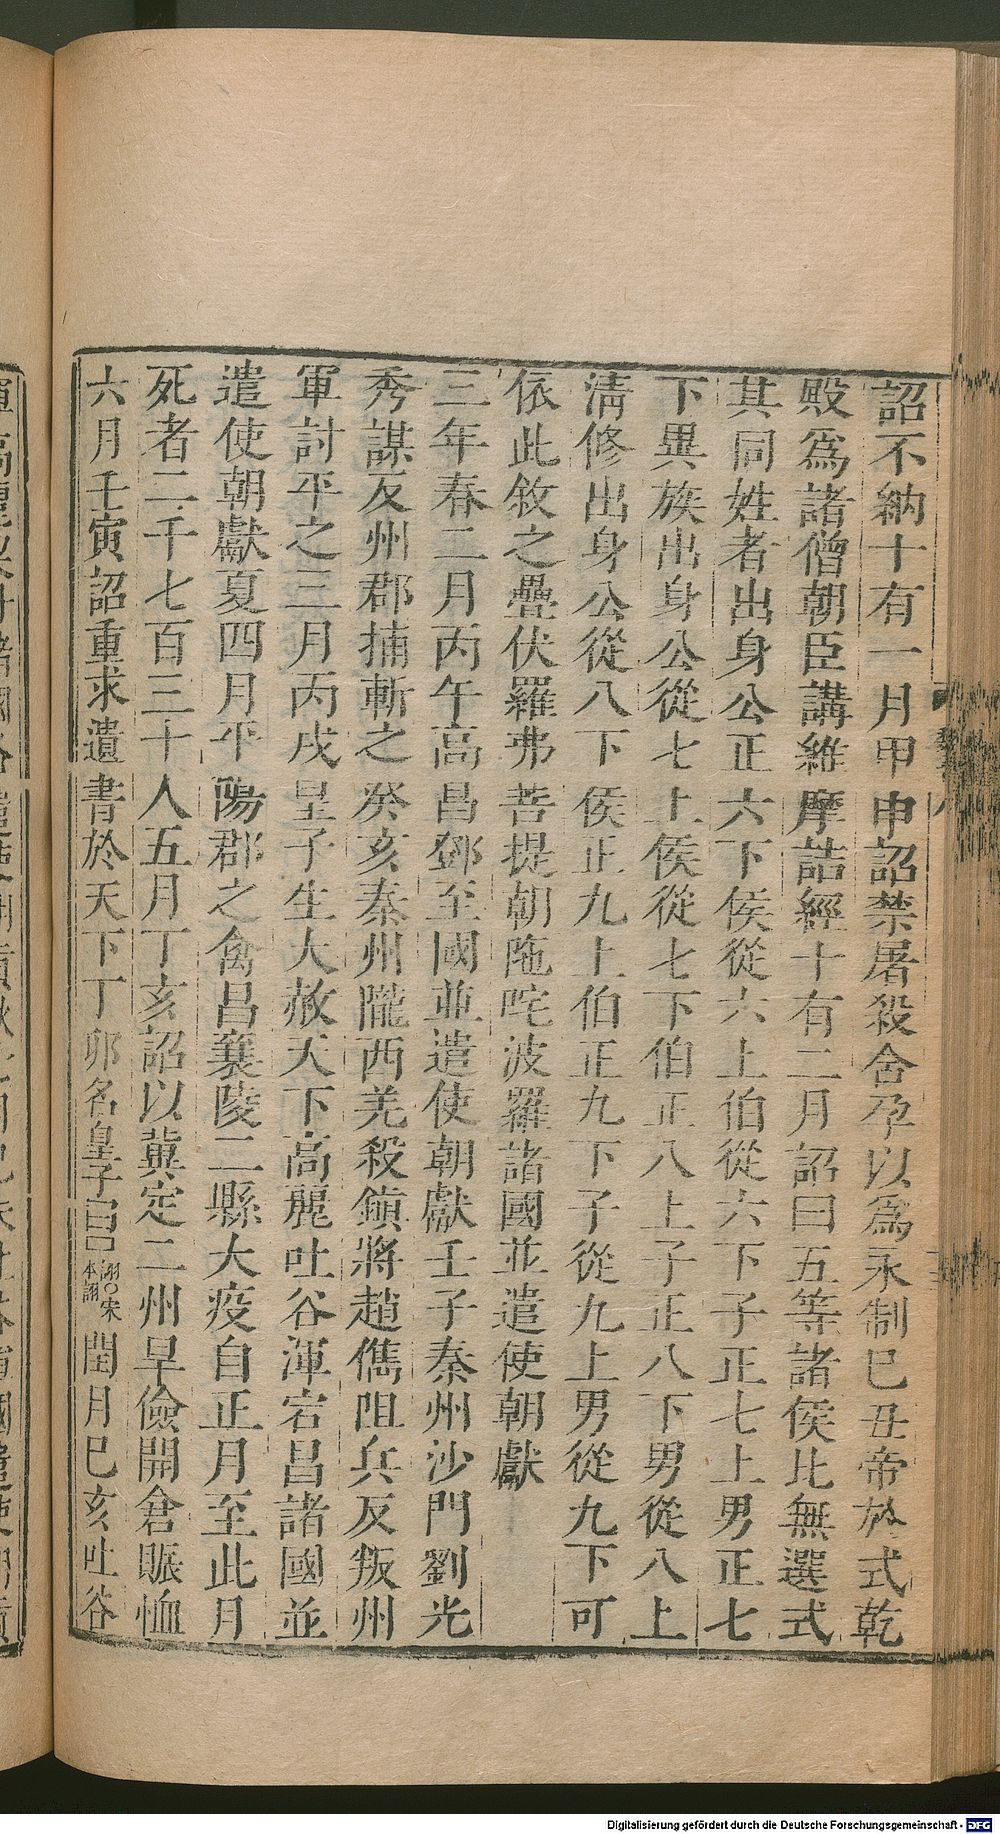 詔不納十有一月甲申詔禁屠殺含孕以爲永制巳丑帝於式乾
殿爲諸僧朝臣講維摩詰經十有二月詔曰五等諸侯比無選式
其同姓者出身公正六下侯從六上伯從六下子正七上男正七
下異族出身公從七上侯從七下伯正八上子正八下男從八上
淸修出身公從八下侯正九上伯正九下子從九上男從九下可
依此敘之疊伏羅弗菩提朝陁咤波羅諸國並遣使朝獻
三年春二月丙午高昌鄧至國並遣使朝獻壬子秦州沙門劉光
秀謀反州郡捕斬之癸亥秦州隴西羌殺鎭將趙儁阻兵反叛州
軍討平之三月丙戌皇子生大赦天下高麗吐谷渾宕昌諸國並
遣使朝獻夏四月平陽郡之禽昌襄陵二縣大疫自正月至此月
死者二千七百三十人五月丁亥詔以冀定二州旱儉開倉賑恤
六月壬寅詔重求遺書於天下丁卯名皇子曰詡○宋本詡閏月巳亥吐谷
Digitalisierung gefördert durch die Deutsche Forschungsgemeinschaft - DFG